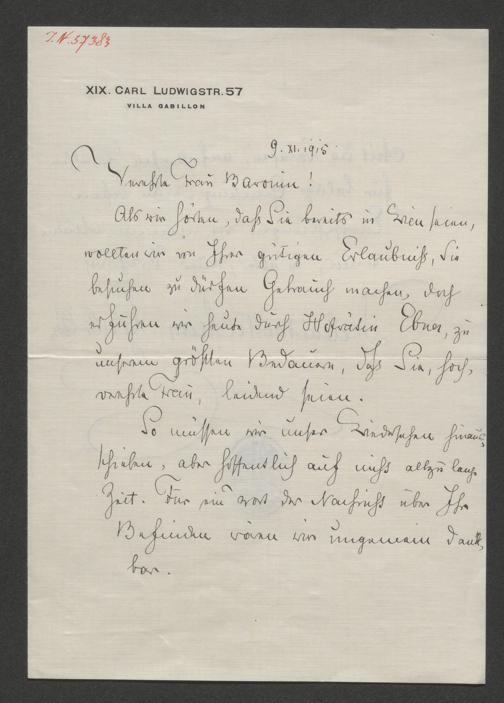 I.N. 57383
XIX. CARL LUDWIGSTR. 57
VILLA GABILLON
9. XI. 1915
Verehrte Frau Baronin!
Als wir hörten, daß Sie bereits in Wien seien,
wollten wir von Ihrer gütigen Erlaubniß, Sie
besuchen zu dürfen Gebrauch machen, doch
erfuhren wir heute durch Hofrätin Ebner, zu
unserem größten Bedauern, daß Sie, hoch-
verehrte Frau, leidend seien.
So müssen wir unser Wiedersehen hinaus-
schieben, aber hoffentlich auf nicht allzu lange
Zeit. Für ein Wort der Nachricht über Ihr
Befinden wären wir ungemein dank-
bar.